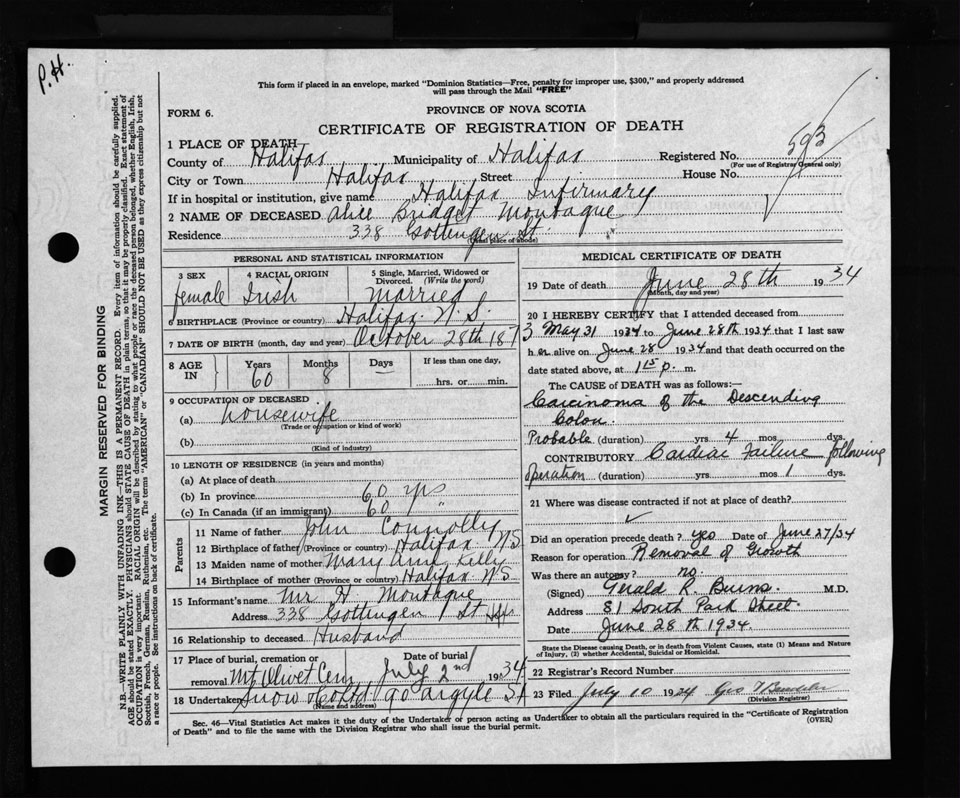 P.H.
This form if placed in an envelope, marked "Dominion Statistics—Free, penalty for improper use, $300," and properly addressed
will pass through the Mail "FREE"
FORM 6.
PROVINCE OF NOVA SCOTIA
CERTIFICATE OF REGISTRATION OF DEATH
593
1 PLACE OF DEATH
County of Halifax Municipality of Halifax Registered No.
(For use of Registrar General only)
City or Town Halifax Street House No.
If in hospital or institution, give name Halifax Infirmary
2 NAME OF DECEASED Alice Bridget Montague
Residence 338 Gottingen St.
(Usual place of abode)
PERSONAL AND STATISTICAL INFORMATION
3 SEX 4 RACIAL ORIGIN 5 Single, Married, Widowed or
Divorced. (Write the word)
female Irish Married
6 BIRTHPLACE (Province or country) Halifax. N.S.
7 DATE OF BIRTH (month, day and year) October 28th 1873
8 AGE IN Years Months Days If less than one day,
60 8 — hrs. or min.
9 OCCUPATION OF DECEASED
(a) housewife
(Trade or occupation or kind of work)
(b)
(Kind of industry)
10 LENGTH OF RESIDENCE (in years and months)
(a) At place of death
(b) In province 60 yrs
(c) In Canada (if an immigrant) 60 "
Parents
11 Name of father John Connolly
12 Birthplace of father (Province or country) Halifax. N.S
13 Maiden name of mother Mary Ann Kelly
14 Birthplace of mother (Province or country) Halifax N.S.
15 Informant's name Mr H Montague
Address 338 Gottingen St
16 Relationship to deceased Husband
17 Place of burial, cremation or Date of burial
removal Mt Olivet Cem July 2nd 1934
18 Undertaker Snow & Co Ltd 90 Argyle St
(Name and address)
MEDICAL CERTIFICATE OF DEATH
19 Date of death June 28th 1934
(Month, day and year)
20 I HEREBY CERTIFY that I attended deceased from
May 31 1934 to June 28th 1934 that I last saw
her alive on June 28 1934 and that death occurred on
the date stated above, at 1 15 p. m.
The CAUSE OF DEATH was as follows:—
Carcinoma of the Descending
Colon.
Probable (duration) yrs 4 mos. dys.
CONTRIBUTORY Cardiac Failure following
operation (duration) yrs mos 1 dys.
21 Where was disease contracted if not at place of death?
Did an operation precede death? yes Date of June 27/34
Reason for operation Removal of Growth
Was there an autopsy? no.
(Signed) Gerald R. Burns. M.D.
Address 81 South Park Street.
Date June 28th 1934.
State the Disease causing Death, or in death from Violent Causes, state (1) Means and Nature
of Injury, (2) whether Accidental, Suicidal or Homicidal.
22 Registrar's Record Number
23 Filed July 10 1934 Geo
(Division Registrar)
Sec. 46—Vital Statistics Act makes it the duty of the Undertaker or person acting as Undertaker to obtain all the particulars required in the "Certificate of Registration
of Death" and to file the same with the Division Registrar who shall issue the burial permit. (OVER)
MARGIN RESERVED FOR BINDING
N.B.—WRITE PLAINLY WITH UNFADING INK—THIS IS A PERMANENT RECORD. Every item of information should be carefully supplied.
AGE should be stated EXACTLY. PHYSICIANS should STATE CAUSE OF DEATH in plain terms, so that it may be properly classified. Exact statement of
OCCUPATION is very important. RACIAL ORIGIN will be described by stating to what people or race the deceased person belonged, whether English, Irish,
Scottish, French, German, Russian, Ruthenian, etc. The terms "AMERICAN" or "CANADIAN" SHOULD NOT BE USED as they express citizenship but not
a race or people. See instructions on back of certificate.